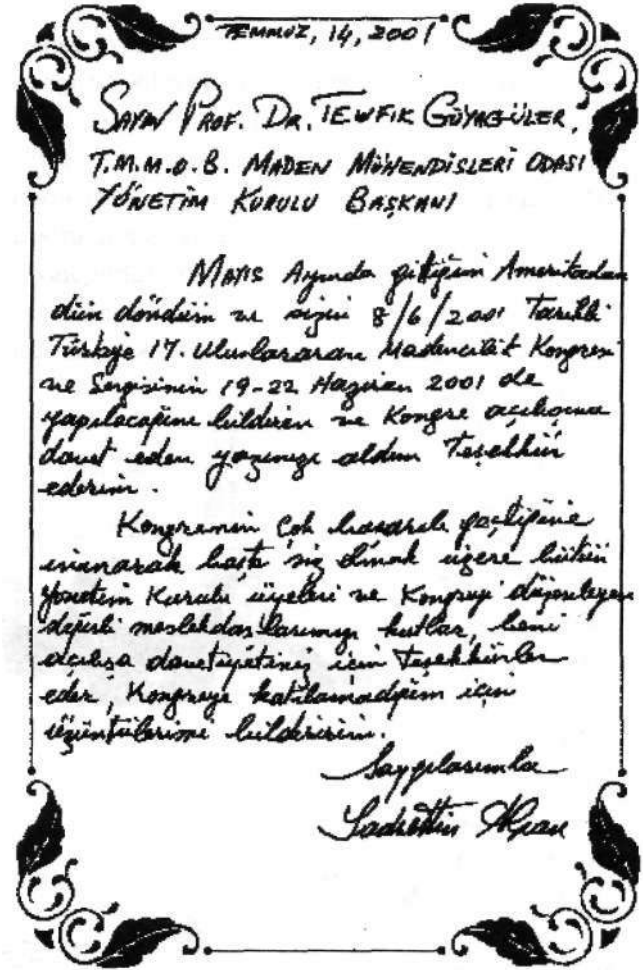 TEMMUZ, 14, 2001
SAYIN PROF. DR. TEWFIK GÜYAGÜLER,
T.M.M.O.B. MADEN MÜHENDİSLERİ ODASI
YÖNETİM KURULU BAŞKANI
MAYIS Ayında gittiğim Amerikadan
dün döndüm ve sizin 8/6/2001 Tarihli
Türkiye 17. Uluslararası Madencilik Kongresi
ve Sergisinin 19-22 Haziran 2001 de
yapılacağını bildiren ve Kongre açılışına
davet eden yazınızı aldım Teşekkür
ederim.
Kongrenin çok başarılı geçtiğine
inanarak başta siz olmak üzere bütün
Yönetim Kurulu üyeleri ve Kongreyi düzenleyen
değerli meslekdaşlarımızı kutlar, beni
açılışa davetiyeniz için Teşekkürler
eder, Kongreye katılamadığım için
üzüntülerimi bildiririm.
Saygılarımla
Sadrettin Alpan